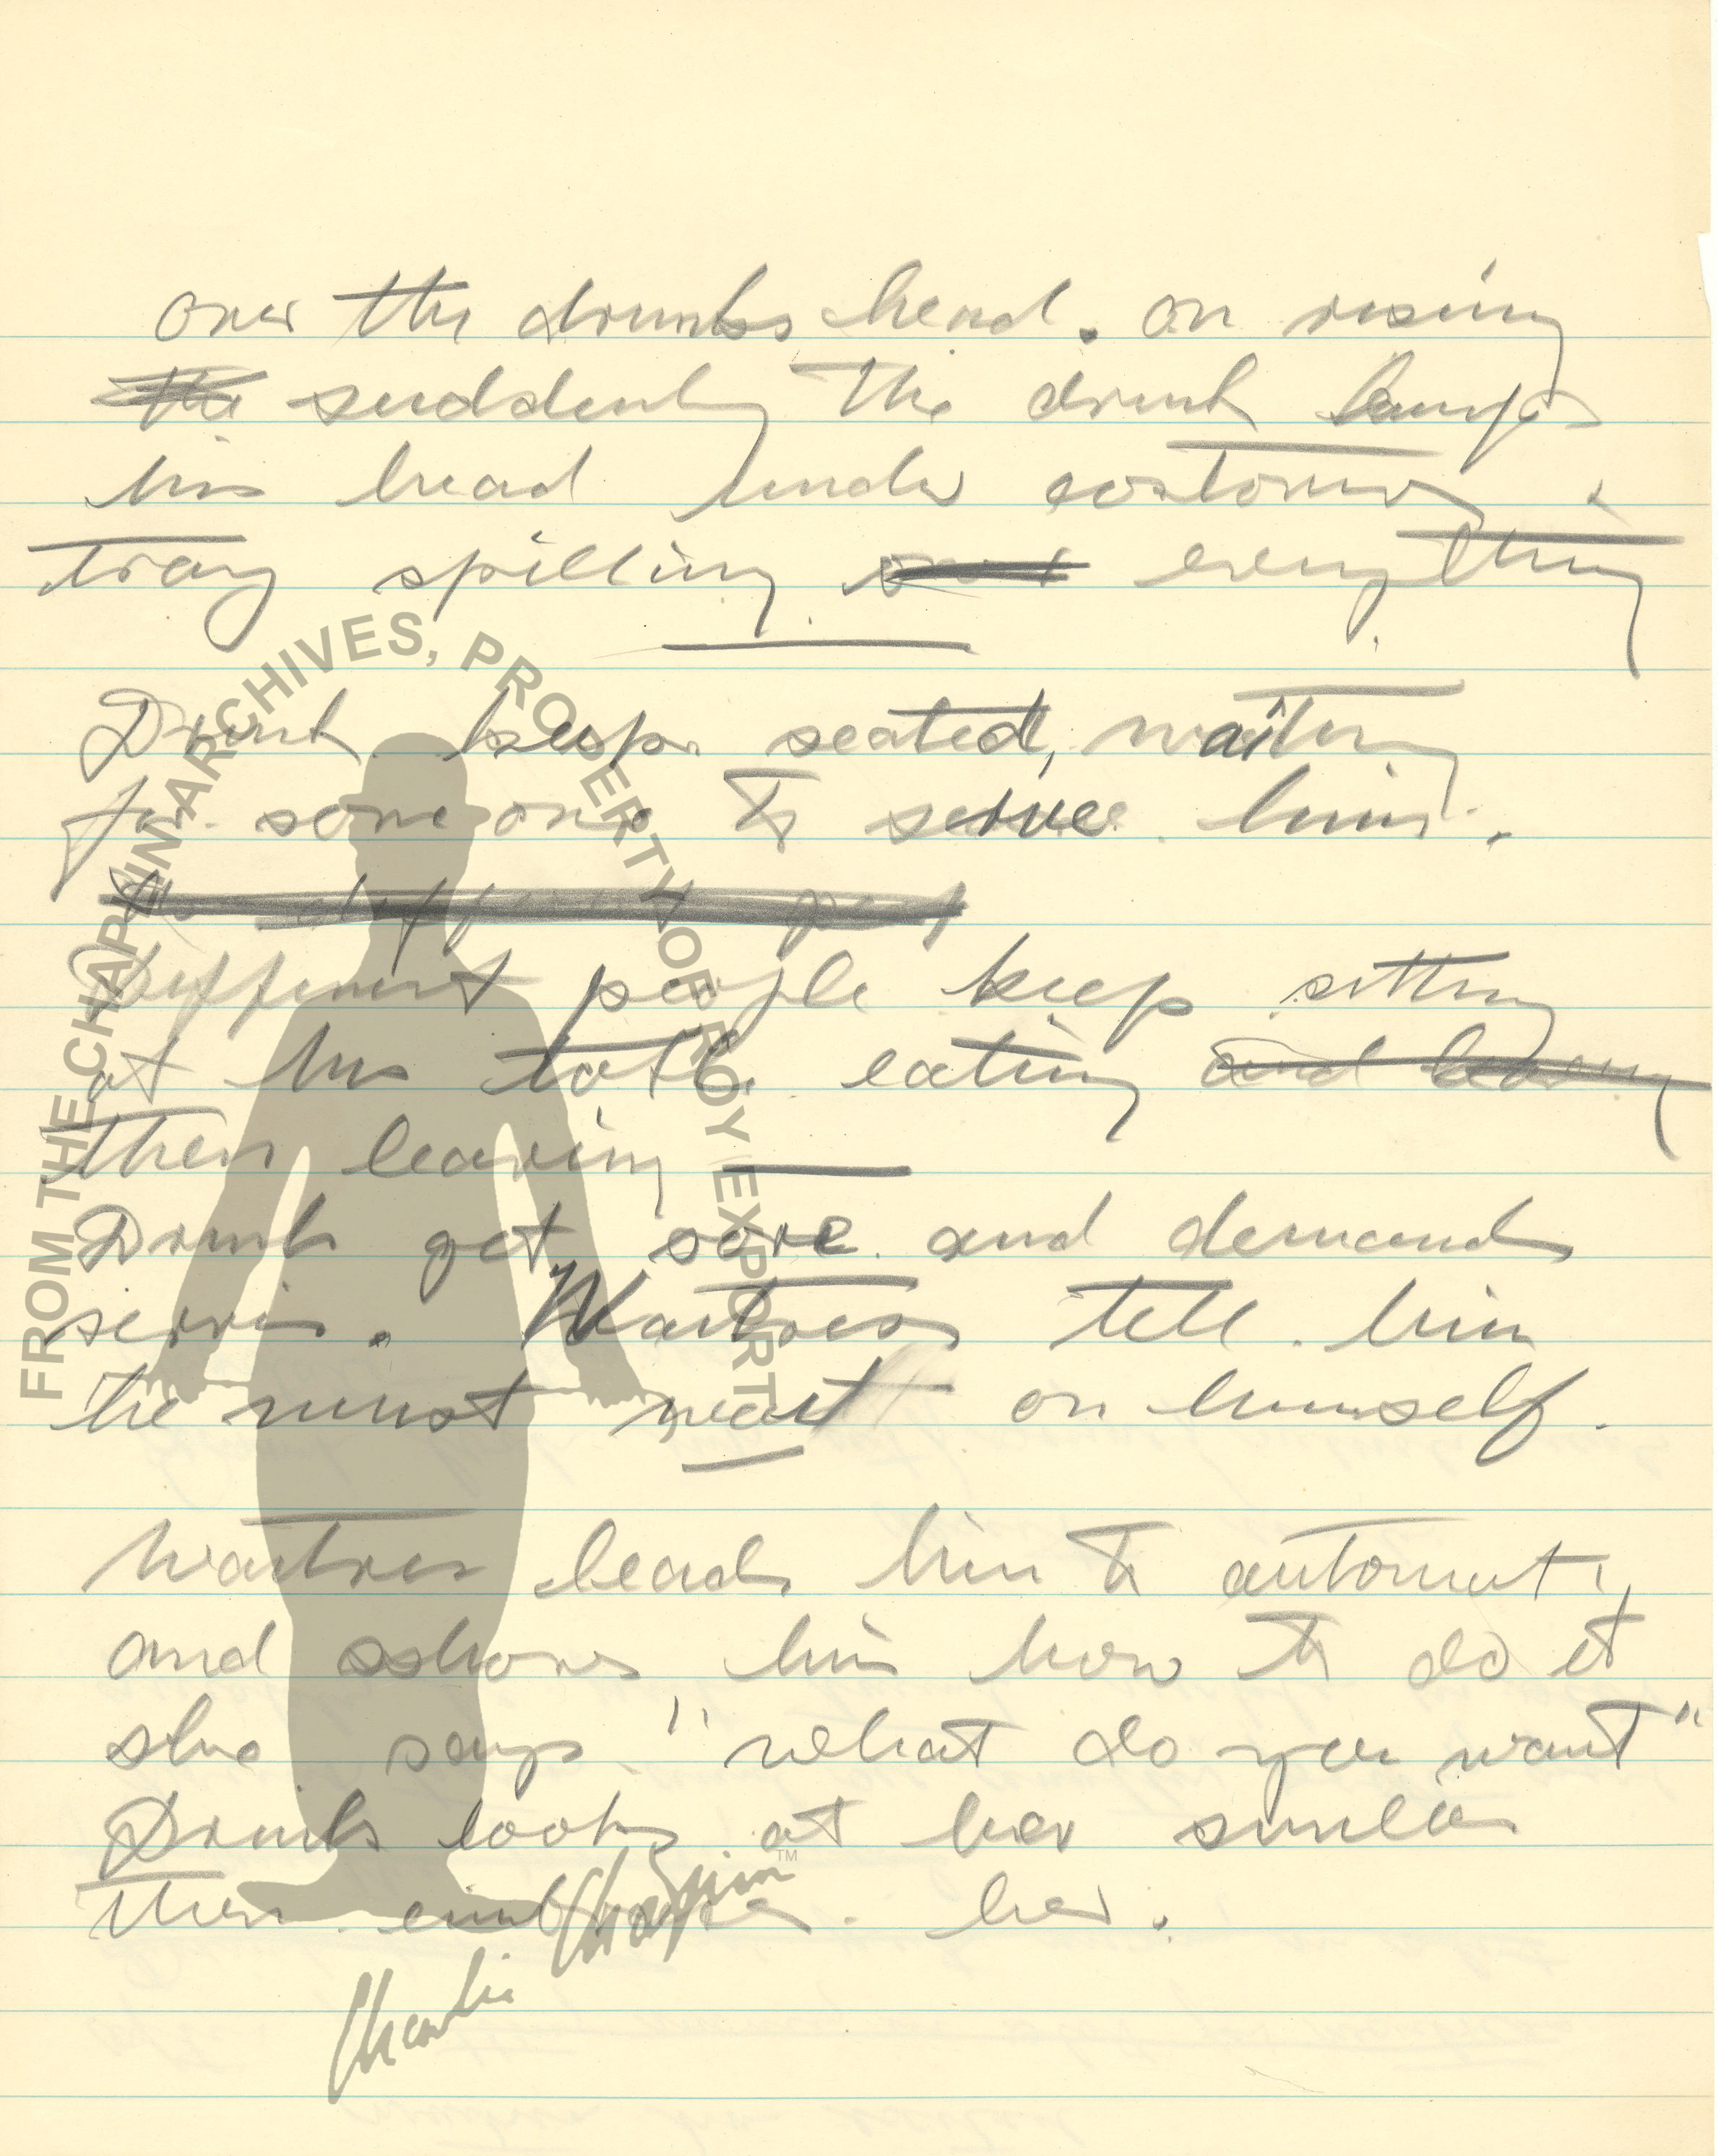 over the drunks head. on rising
the suddenly the drunk bumps
his head under customers
tray spilling out everything
Drunk keeps seated, waiting
for some one to serve him.
the different peop
Different people keep sitting
at his table eating and leaving
then leaving
Drunk get sore and demands
servis. Waitress tell him
he must wait on himself.
Waitress leads him to automat,
and sshows him how to do it
she says "what do you want"
Drunk looks at her smiles
then embraces her.
FROM THE CHAPLIN ARCHIVES, PROPERTY OF ROY EXPORT
Charlie Chaplin ™